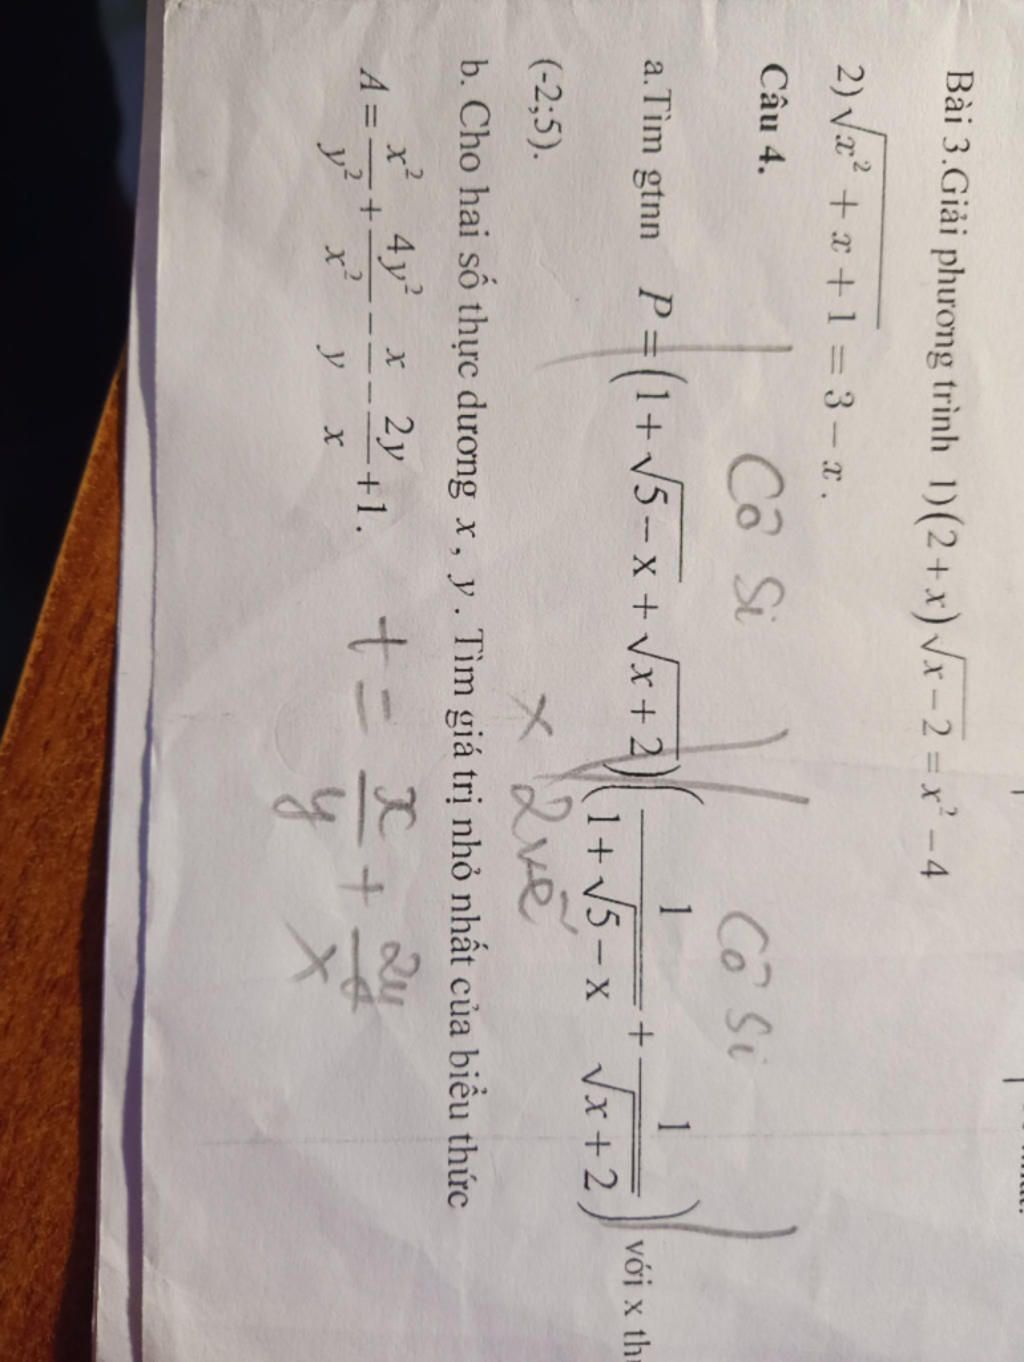 Bài 3.Giải phương trình 1)(2+x)√(x−2) = x² − 4
2)√(x² + x + 1) = 3 − x .
Câu 4.
Cô Si Cô Si
a.Tìm gtnn P = (1+√(5−x) + √(x+2))(1/(1+√(5−x)) + 1/√(x+2)) với x
(-2;5).
x 2 vế
b. Cho hai số thực dương x , y . Tìm giá trị nhỏ nhất của biểu thức
A = x²/y² + 4y²/x² − x/y − 2y/x + 1. t = x/y + 2y/x